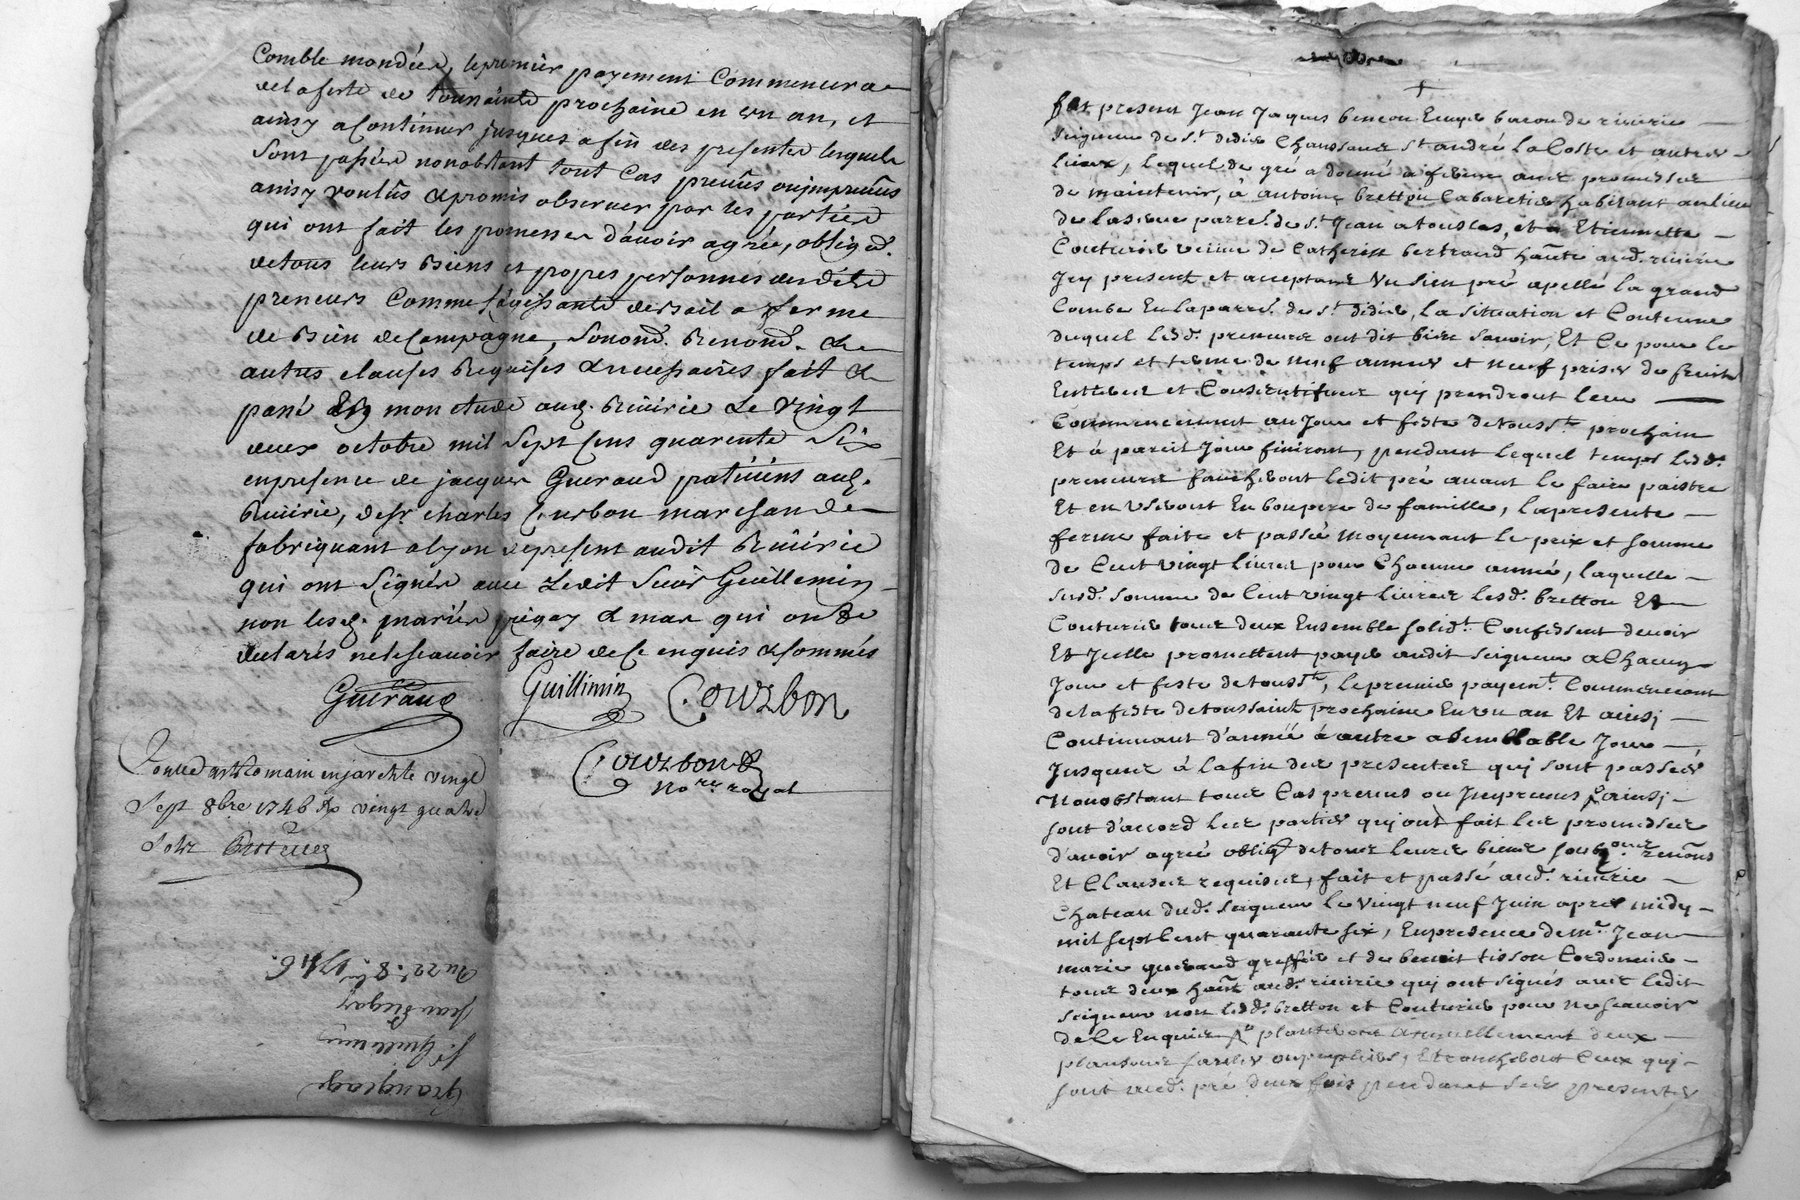 Comble mondées, le premier payement Commencera
de la feste de toussainte prochaine en un an, et
ainsy a Continuer jusques a fin des presentes lesquels
sont passées nonobstant tout Cas preuûs ou impreuûs
ainsy voulûs & promis observer par les parties
qui ont fait les promesses d'auoir agrée, obligaõn.
de tous leurs Biens et propres personnes desd.
preneurs Comme s'agissante de Bail a ferme
de Bien de Campagne, Renond. &
autres clauses Requises & necessaires fait &
passé En mon etude aud. Riuirie Le vingt
deux octobre mil sept Cens quarente Six
en presence de jacques Gueraud praticiens aud.
Riuirie, de sr. charles Courbon marchand
fabriquant a lyon de present audit Riuirie
qui ont Signés auec Ledit Sieur Guillemin
non lesd. mariés pregay & mar qui ont
declarés ne le scauoir faire de ce enquis & sommés
Gueraud Guillimin Courbon
Courbon
Nore royal
Controllé a st Romain en jarest le vingt
Sept 8bre 1746 Rx vingt quatre
Sols
Du 22e. 8bre 1746.
Jean Pregay
Sr. Guillimin
Grangeage
fut present Jean Jaques baron de riuerie
seigneur de st. didier Chaussans st. andré la Coste et autres
lieux, lequel de gré a donné a ferme auec promesses
de maintenir, a antoine bretton Cabaretier habitant au lieu
de parre. de st. Jean a touslas, et a Etiennette
Couturier veuve de Catherin bertrand hante aud. riuirie
Icy present et acceptans Un sien pré apellé la grand
Combe En la parre. de st. didier, la situation et Contenue
duquel lesd. preneurs ont dit bien scavoir, Et Ce pour le
temps et terme de neuf années et neuf prises de fruits
Entieres et Consecutifues qui prendront leur
Commencement au Jour et feste de toussts. prochain
Et à pareil Jour finiront, pendant lequel temps lesd.
preneurs faucheront ledit pré auant le faire paistre
Et en Useront En bons pere de famille, la presente
ferme faite et passée moyennant le prix et somme
de Cent vingt livres pour Chacune année, laquelle
susd. somme de Cent vingt livres lesd. bretton Et
Couturier tous deux Ensemble solidt. Confessent devoir
Et Icelle promettent payer audit seigneur a Chacun
Jour et feste de toussts, le premier payemt. Commencant
de la feste de toussaint prochaine En un an Et ainsi
Continuant d'année à autre a semblable Jour
Jusques à la fin des presentes qui sont passées
Nonobstant tous Cas preuus ou Impreuus & ainsi
sont d'accord les parties qui ont fait les promesses
d'avoir agrée oblig. de tous leurs biens
Et Clauses requises, fait et passé aud. riuerie
Chateau dud. seigneur le vingt neuf Juin apres midy
mil sept Cent quarante six, En presence de me. Jean
marie gueraud greffier et de benoit tisson Cordonnier
tous deux hants aud. riuirie qui ont signés auec ledit
seigneur non lesd. bretton et Couturier pour ne scauoir
de Ce Enquis planteront Annuellement deux
plansons saules ou peupliers, Etroncheront Ceux qui
sont aud. pré deux fois pendant les presentes